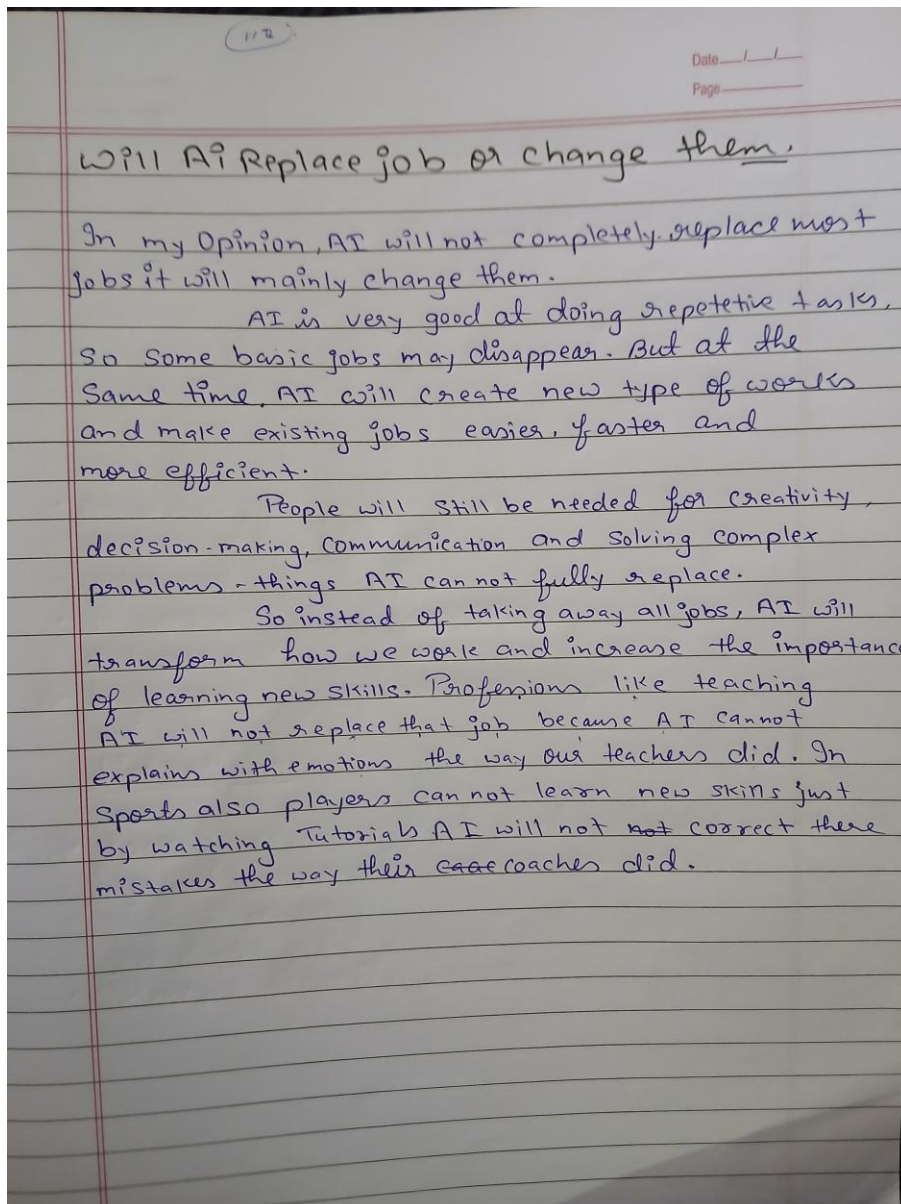 112
Date / /
Page
Will Ai Replace job or change them.
In my Opinion, AI will not completely replace most
jobs it will mainly change them.
AI is very good at doing repetetive tasks,
so some basic jobs may disappear. But at the
Same time, AI will create new type of works
and make existing jobs easier, faster and
more efficient.
People will still be needed for creativity,
decision-making, communication and solving complex
problems - things AI can not fully replace.
So instead of taking away all jobs, AI will
transform how we work and increase the importanc
of learning new skills. Professions like teaching
AI will not replace that job because AI cannot
explains with emotions the way our teachers did. In
Sports also players can not learn new skins just
by watching Tutorials AI will not not correct there
mistakes the way their coaches did.